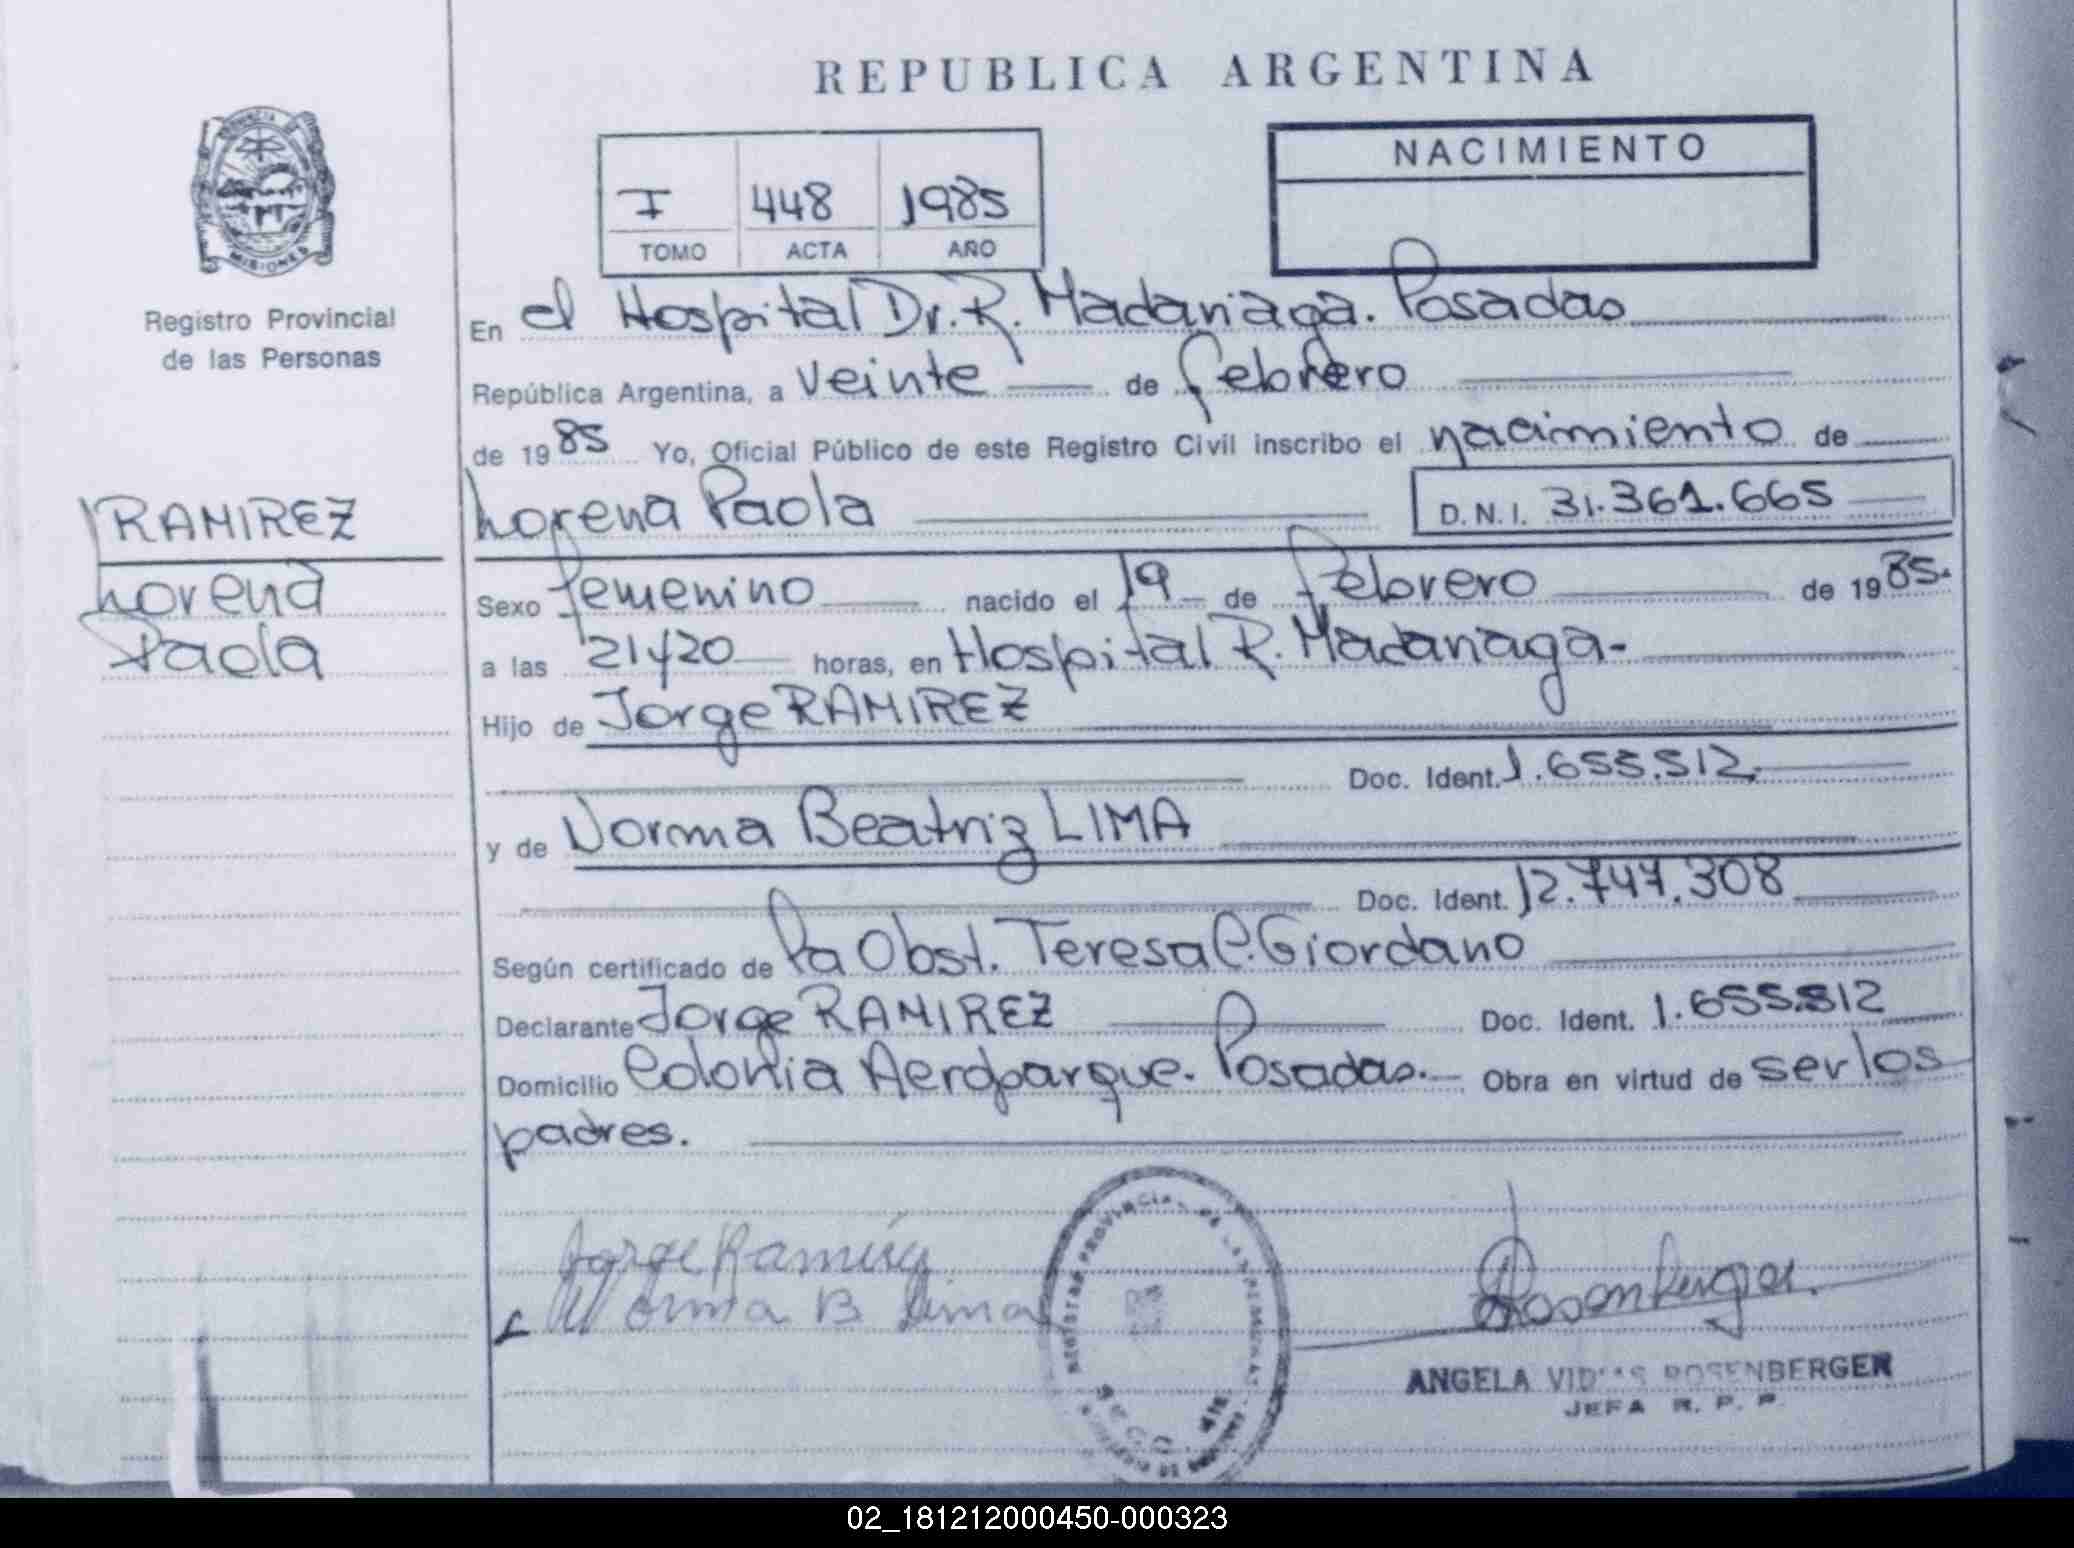 REPUBLICA ARGENTINA
PROVINCIA DE
MISIONES
Registro Provincial
de las Personas
I 448 1985
TOMO ACTA AÑO
NACIMIENTO
En el Hospital Dr. R. Madariaga. Posadas
República Argentina, a veinte de febrero
de 1985 Yo, Oficial Público de este Registro Civil inscribo el nacimiento de
RAMIREZ
Lorena
Paola
Lorena Paola D.N.I. 31.361.665
Sexo femenino nacido el 19 de febrero de 1985.
a las 21y20 horas, en Hospital R. Madariaga-
Hijo de Jorge RAMIREZ
Doc. Ident. 1.655.512
y de Norma Beatriz LIMA
Doc. Ident. 12.747.308
Según certificado de la Obst. Teresa C. Giordano
Declarante Jorge RAMIREZ Doc. Ident. 1.655.512
Domicilio Colonia Aeroparque. Posadas. Obra en virtud de ser los
padres.
Jorge Ramírez
Norma B. Lima
REGISTRO PROVINCIAL DE LAS PERSONAS
Rosenberger
ANGELA ROSENBERGER
JEFA R. P. P.
02_181212000450-000323